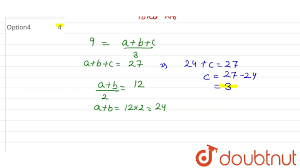 Option4 4
9 = a+b+c / 3
a+b+c = 27 ⇒ 24 + c = 27
c = 27-24
= 3
a+b / 2 = 12
a+b = 12×2 = 24
doubtnut